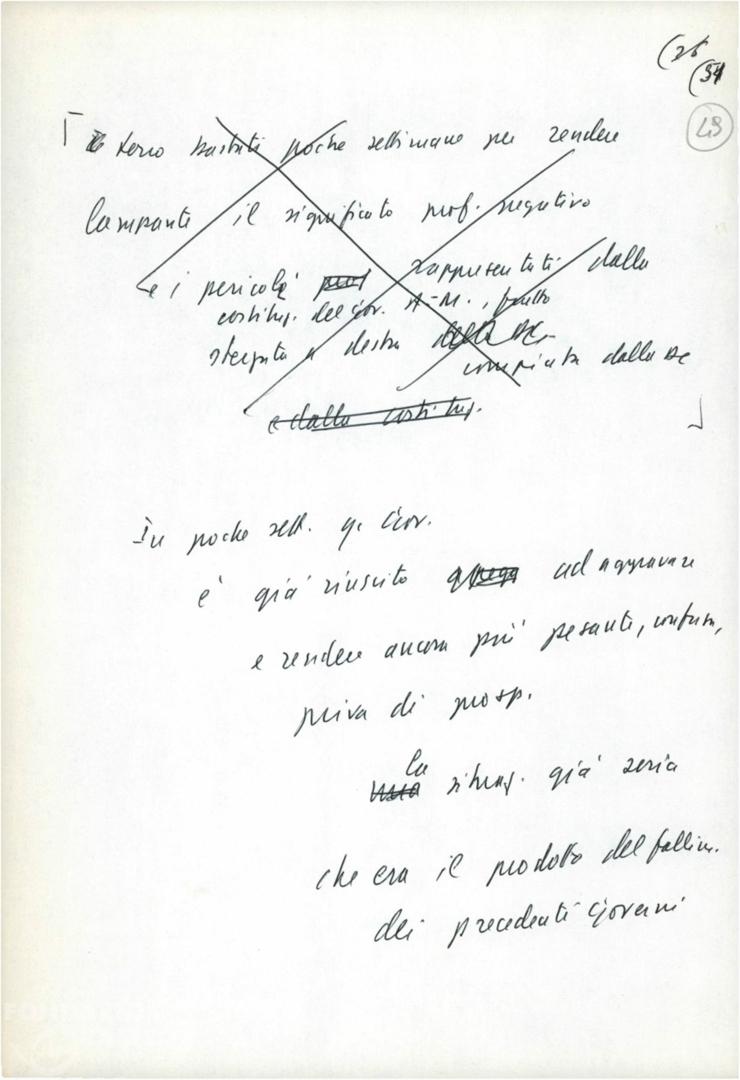 (25
(54
48
sono bastate poche settimane per rendere
lampante il significato prof. negativo
e i pericoli rappresentati dalla
costituz. del Gov. A.-M., frutto
sterzata a destra della DC
compiuta dalla DC
e dalla costituz.
In poche sett. q. Gov.
è già riuscito ad aggravare
e rendere ancora più pesante, confusa,
priva di prosp.
la
una situaz. già seria
che era il prodotto del fallim.
dei precedenti Governi